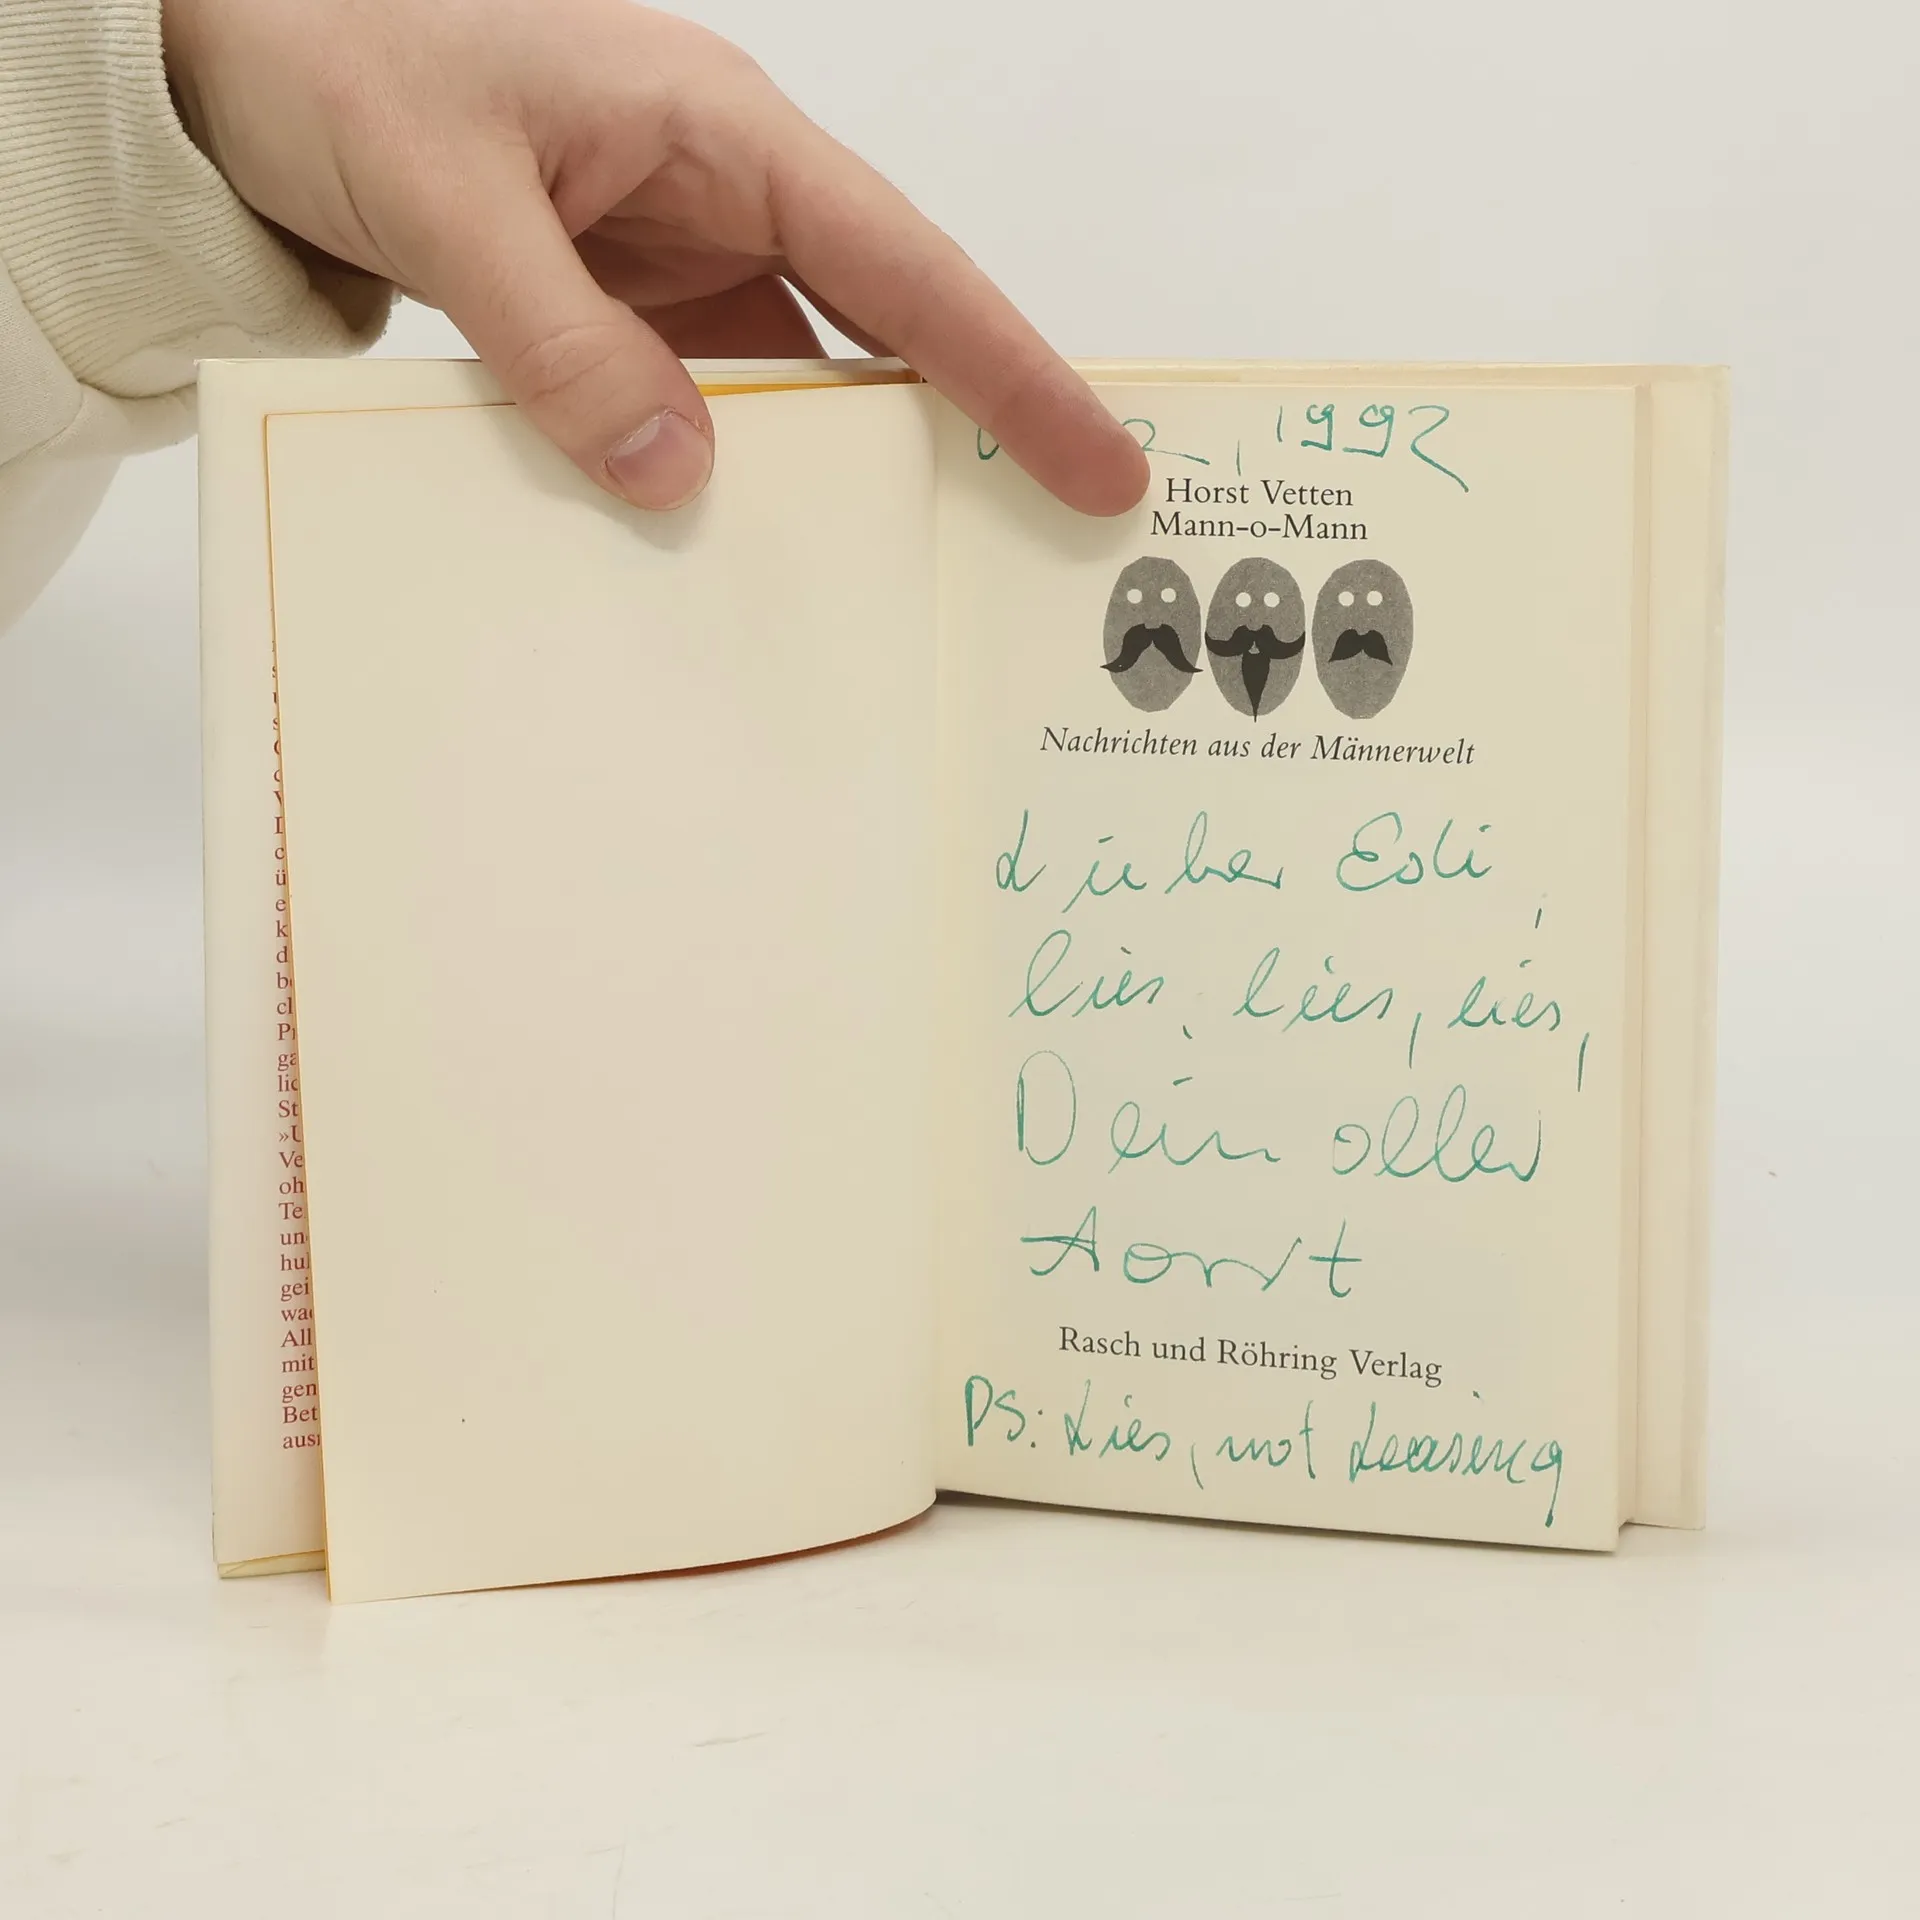 , 1992
Horst Vetten
Mann-o-Mann
Nachrichten aus der Männerwelt
Lieber Edi,
lies, lies, lies,
Dein oller
Horst
Rasch und Röhring Verlag
PS: Lies, not Leasing
k
d
ch
Pr
ga
lic
St
»U
Ve
oh
Te
un
hul
gei
wac
All
mit
gen
Bet
ausr